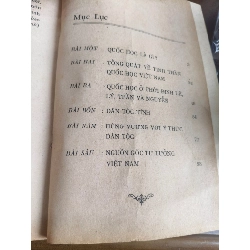 MỤC LỤC
BÀI MỘT : QUỐC HỌC LÀ GÌ?
BÀI HAI : TỔNG QUÁT VỀ TINH THẦN
QUỐC HỌC VIỆT NAM
BÀI BA : QUỐC HỌC Ở THỜI ĐINH LÊ,
LÝ, TRẦN VÀ NGUYỄN
BÀI BỐN : DÂN TỘC TÍNH
BÀI NĂM : HÙNG VƯƠNG VỚI Ý THỨC
DÂN TỘC
BÀI SÁU : NGUỒN GỐC TƯ TƯỞNG
VIỆT NAM